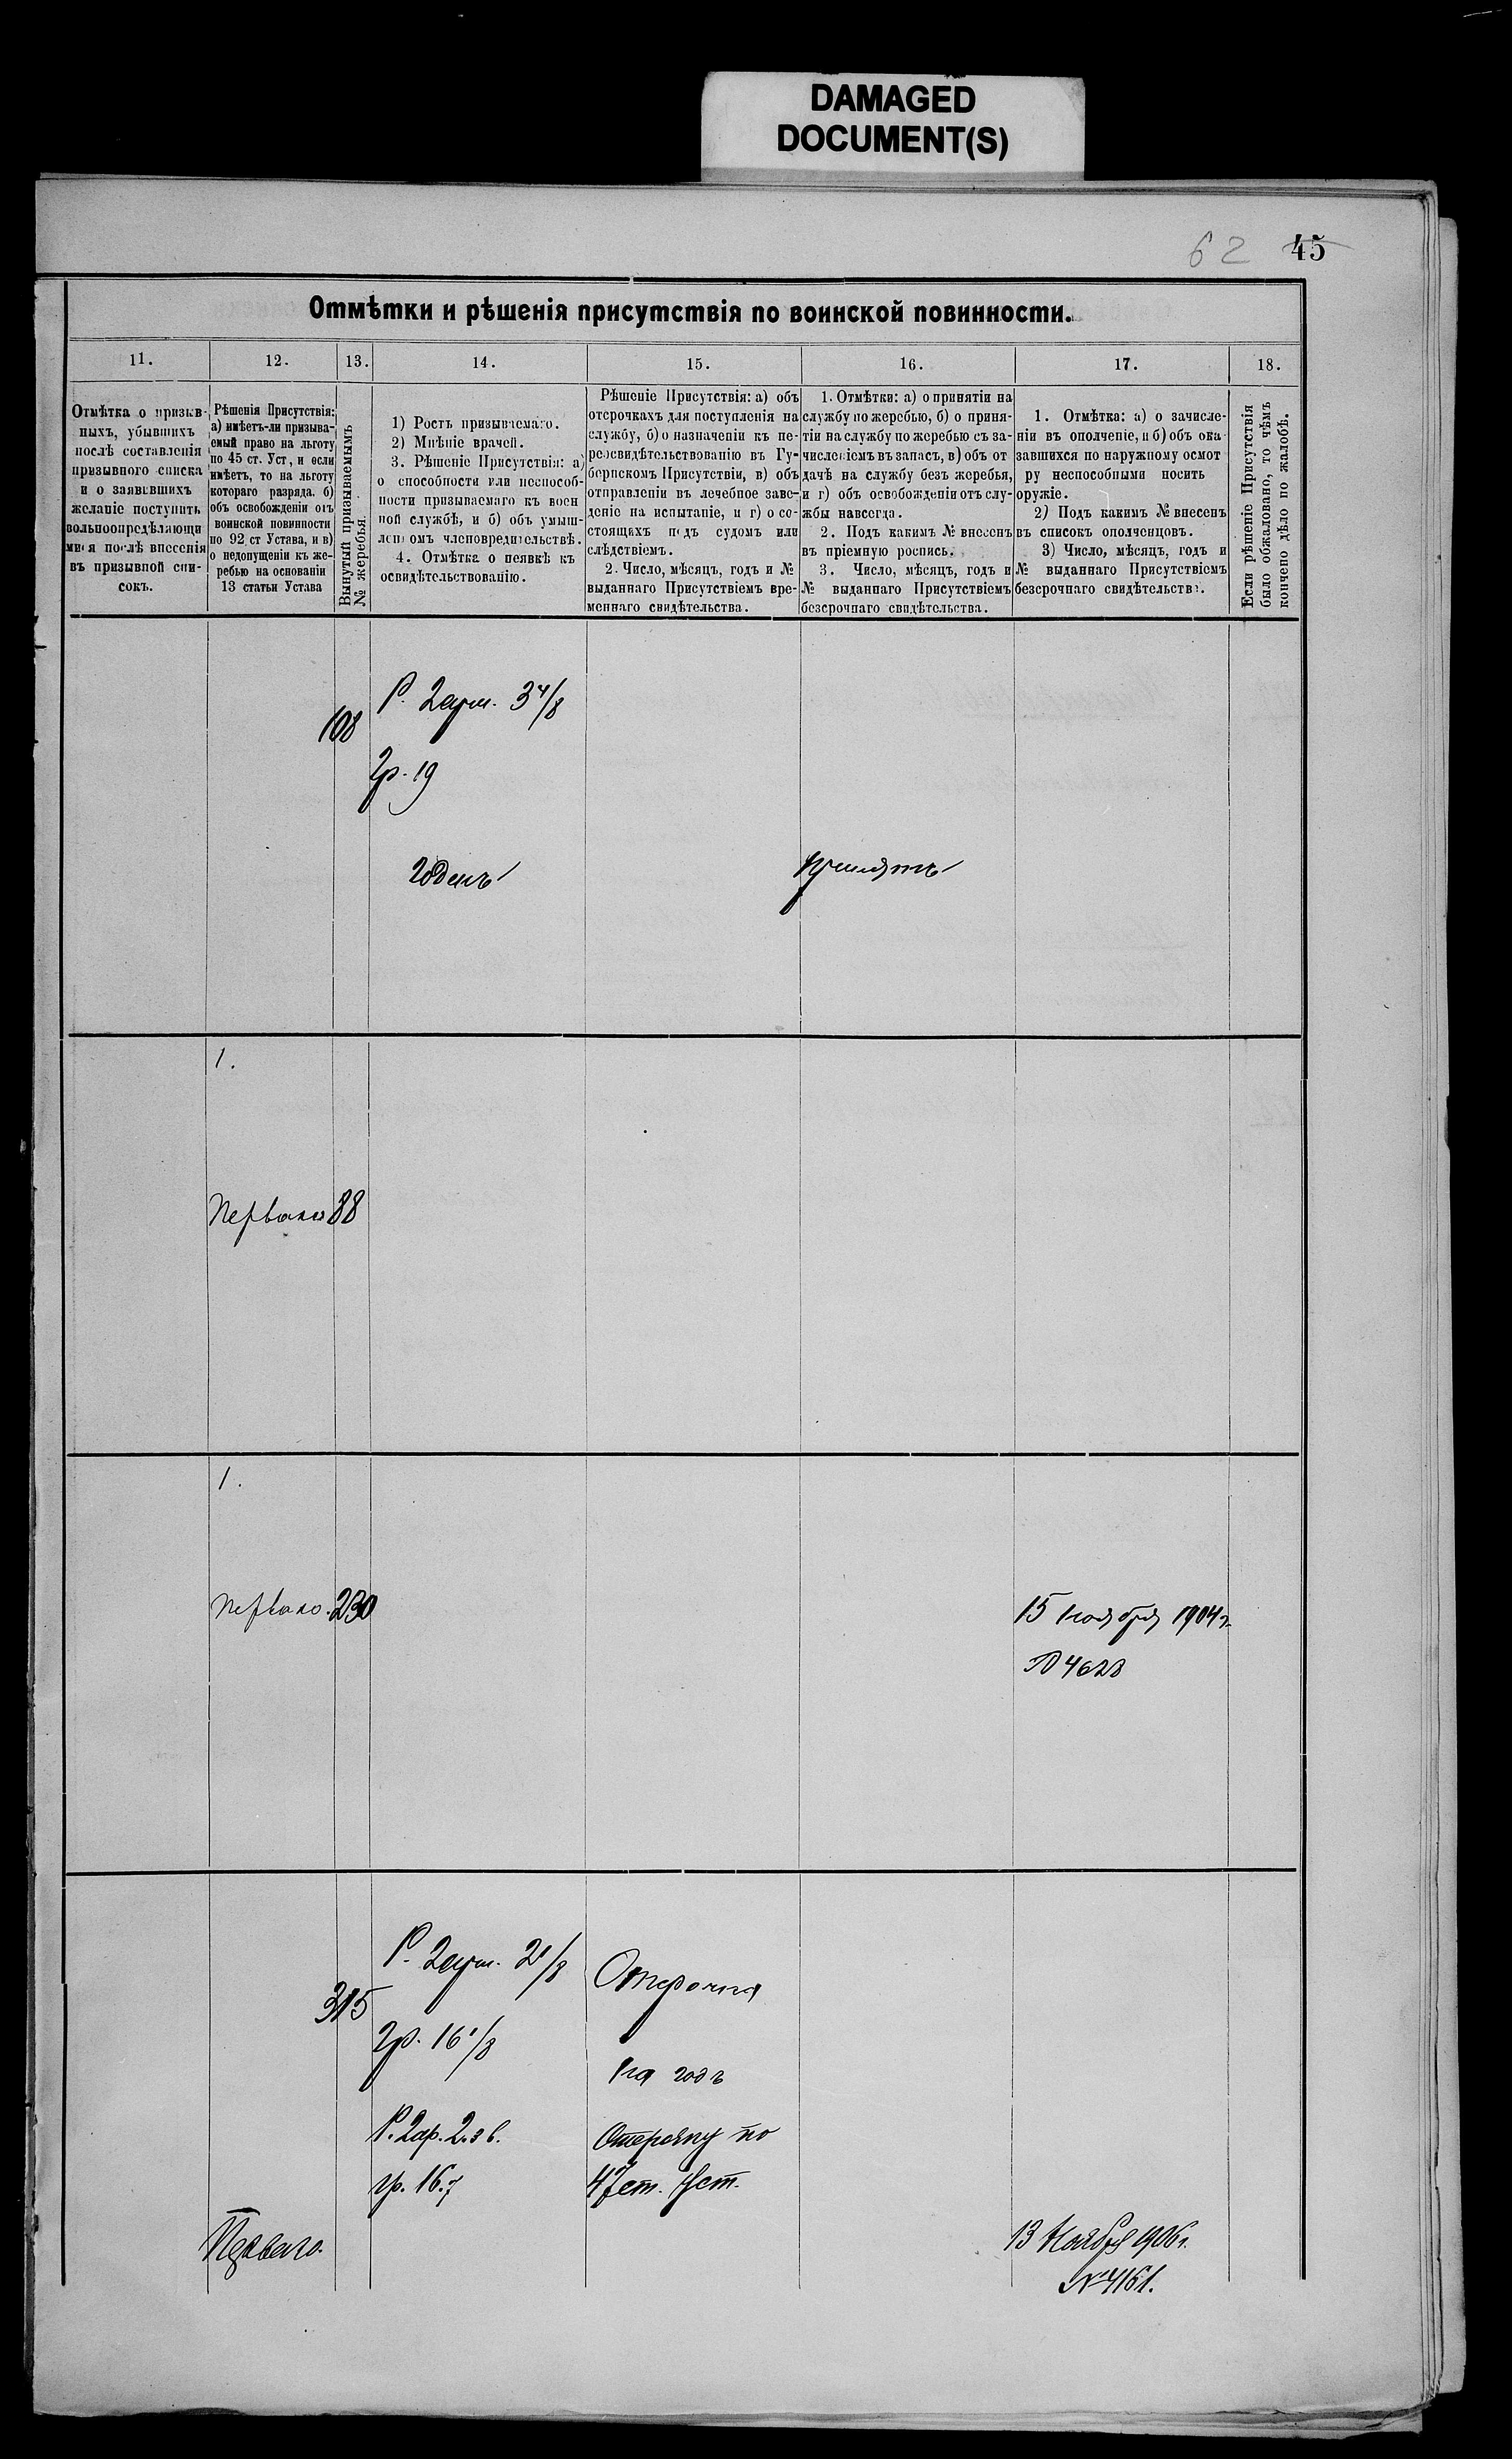 DAMAGED
DOCUMENT(S)
62 45
Отмѣтки и рѣшенія присутствія по воинской повинности.
11.
12.
13.
14.
15.
16.
17.
18.
Отмѣтка о призыв-
ныхъ, убывшихъ
послѣ составленія
призывного списка
и о заявившихъ
желаніе поступить
вольноопредѣляющи
мися послѣ внесенія
въ призывной спи-
сокъ.
Рѣшенія Присутствія:
а) имѣетъ-ли призыва-
емый право на льготу
по 45 ст. Уст, и если
имѣетъ, то на льготу
котораго разряда. б)
объ освобожденіи отъ
воинской повинности
по 92 ст Устава, и в)
о недопущеніи къ же-
ребью на основаніи
13 статьи Устава
Вынутый призываемымъ
№ жеребья.
1) Ростъ призываемаго.
2) Мнѣніе врачей.
3. Рѣшеніе Присутствія: а)
о способности или неспособ-
ности призываемаго къ воен
ной службѣ, и б) объ умыш-
ленномъ членовредительствѣ.
4. Отмѣтка о неявкѣ къ
освидѣтельствованію.
Рѣшеніе Присутствія: а) объ
отсрочкахъ для поступленія на
службу, б) о назначеніи къ пе-
реосвидѣтельствованію въ Гу-
бернскомъ Присутствіи, в) объ
отправленіи въ лечебное заве-
деніе на испытаніе, и г) о со-
стоящихъ подъ судомъ или
слѣдствіемъ.
2. Число, мѣсяцъ, годъ и №
выданнаго Присутствіемъ вре-
меннаго свидѣтельства.
1. Отмѣтки: а) о принятіи на
службу по жеребью, б) о приня-
тіи на службу по жеребью съ за-
численіемъ въ запасъ, в) объ от
дачѣ на службу безъ жеребья,
и г) объ освобожденіи отъ слу-
жбы навсегда.
2. Подъ какимъ № внесенъ
въ пріемную роспись.
3. Число, мѣсяцъ, годъ и
№ выданнаго Присутствіемъ
безсрочнаго свидѣтельства.
1. Отмѣтка: а) о зачисле-
ніи въ ополченіе, и б) объ ока
завшихся по наружному осмот
ру неспособными носить
оружіе.
2) Подъ какимъ № внесенъ
въ списокъ ополченцовъ.
3) Число, мѣсяцъ, годъ и
№ выданнаго Присутствіемъ
безсрочнаго свидѣтельства.
Если рѣшеніе Присутствія
было обжаловано, то чѣмъ
кончено дѣло по жалобѣ.
108
Р. 2 арш. 3 4/8
гр. 19
годенъ
принятъ
1.
Перваго 88
1.
перваго. 230
15 ноября 1904 г.
№ 4628
315
Р. 2 арш. 2 1/8
гр. 16 1/8
Р. 2 ар. 2. 3 в.
гр. 16.7
Отсрочка
на годъ
Отсрочку по
47 ст. Уст.
Перваго.
13 Ноября 1906 г.
№ 4161.